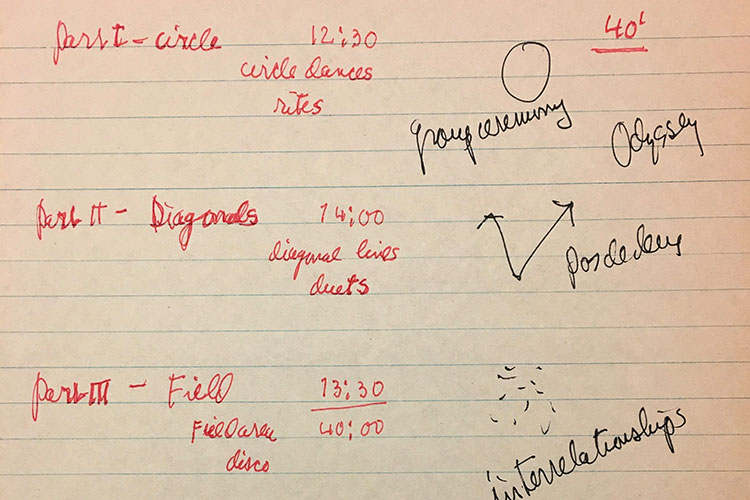 Part I - circle 12:30 40'
circle dances
rites
group ceremony
Odyssey
Part II - Diagonals 14:00
diagonal lines
duets
pas de deux
Part III - Field 13:30
Field area 40:00
disco
interrelationships